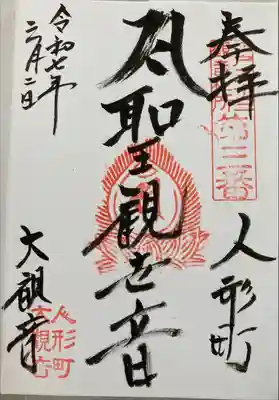 奉拝
第三番
人形町
聖観世音
令和七年
二月二日
大観音寺
人形町
大観音寺